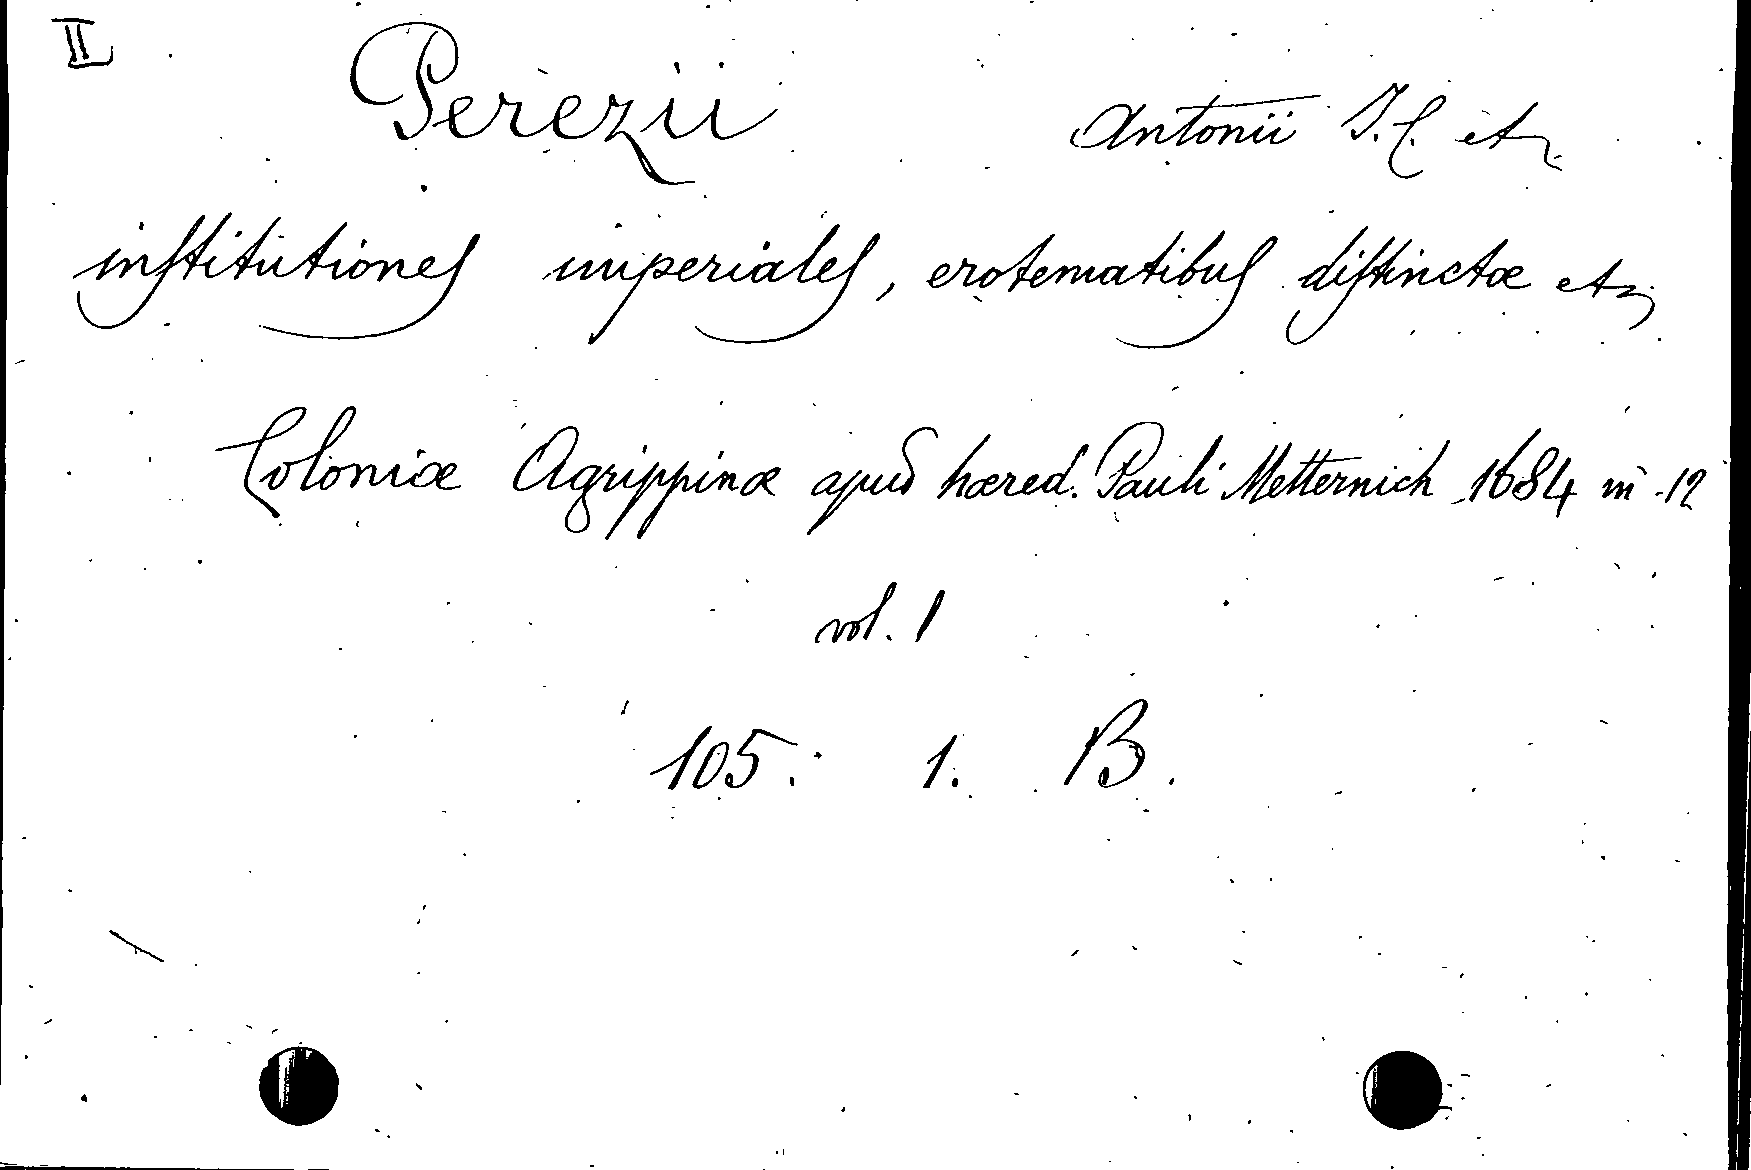 II
Perezii Antonii J.C. etz.
institutiones imperiales, erotematibus distinctæ etz
Coloniæ Agrippinæ apud hæred. Pauli Metternich 1684 in 12
vol. 1
105. 1. B.